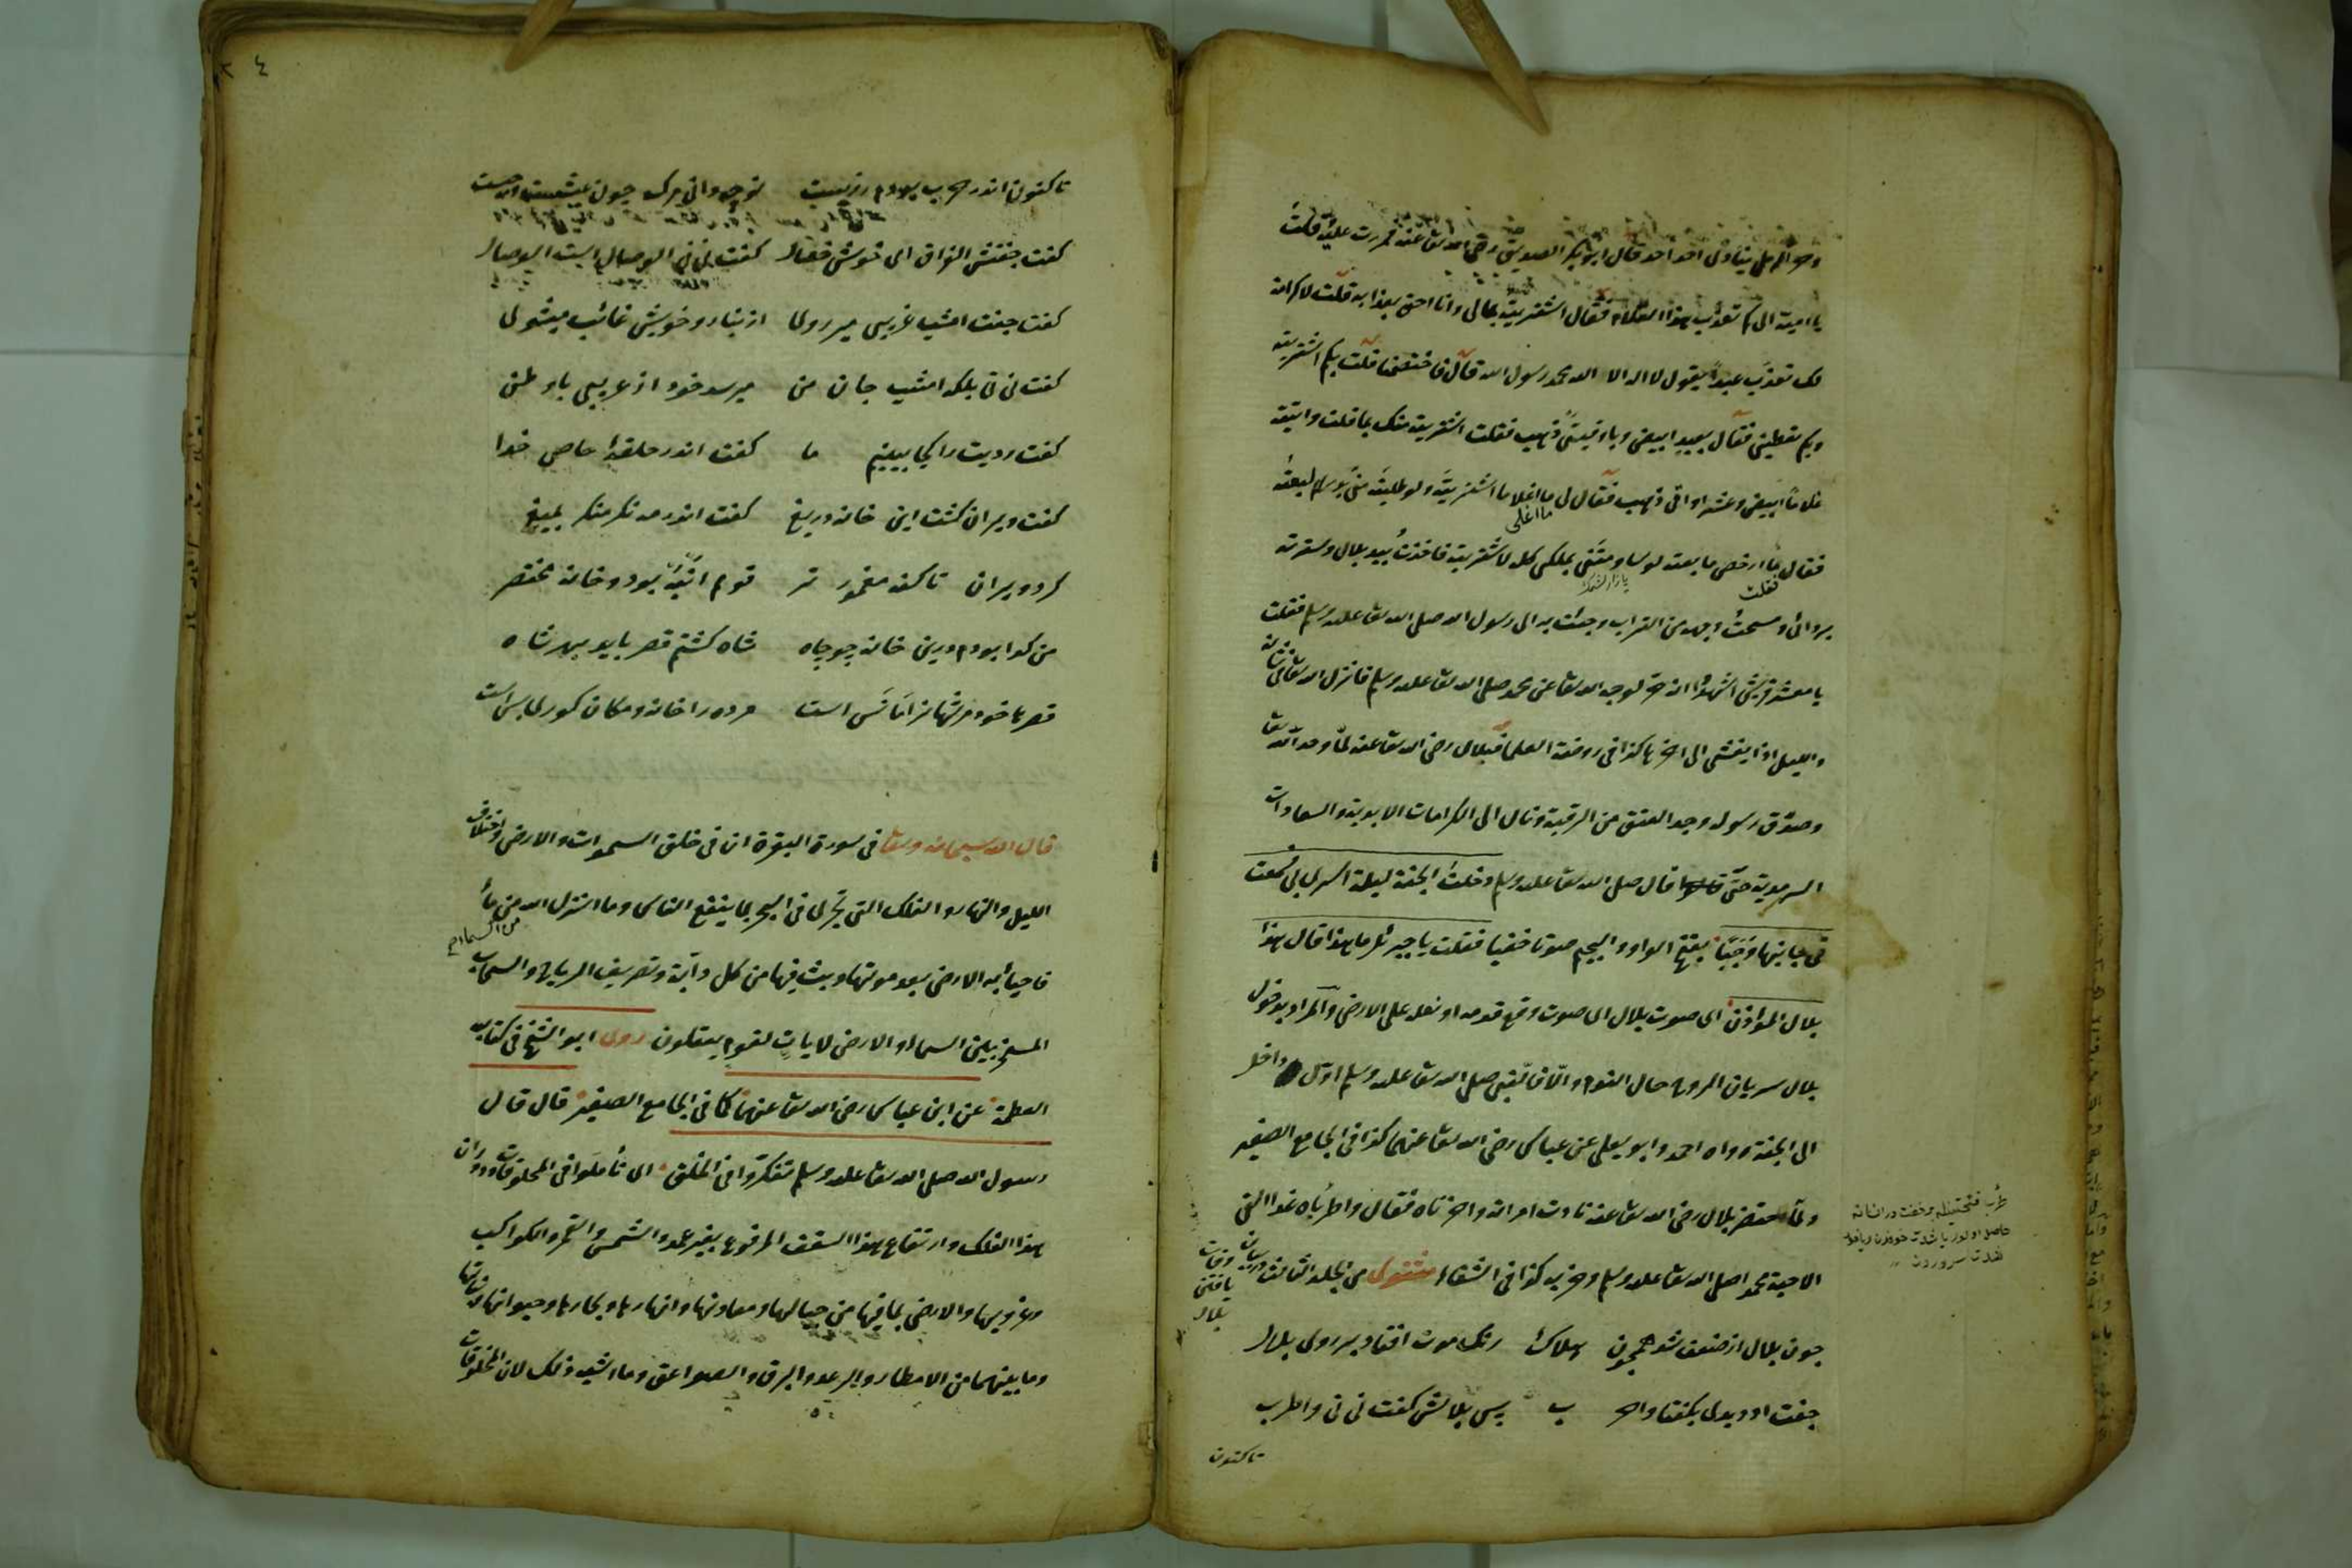 وهو في الرمل ينادى احد احد قال ابو بكر الصديق رضى الله تعالى عنه فمررت عليه فقلت
يا امية الى كم تعذب هذا الغلام فقال اشتريته بمالى وانا احق بعذابه قلت لا كرامة
لك تعذب عبداً يقول لا اله الا الله محمد رسول الله قال فاختصمنا قلت بكم اشتريته
وبكم تعطينى فقال بعبد ابيض وباوقيتى ذهب فقلت اشتريته منك بما قلت وابتعته
غلاماً ابيض وعشر اواقى ذهب فقال لى ما اغلا ما اشتريته ولو طلبته منى بدرهم لبعته
ما اغلى
فقال ما ارخص ما بعته لو ساومتنى بملكى كله لاشتريته فاخذت بيد بلال وسترته
فقلت
بردائى ومسحت وجهه من التراب وجئت به الى رسول الله صلى الله تعالى عليه وسلم فقلت
يا معشر قريش اشهدوا انه حر لوجه الله تعالى عن محمد صلى الله تعالى عليه وسلم فانزل الله تعالى فى شانه
والليل اذا يغشى الى اخرها كذا فى روضة العلما فبلال رضى الله تعالى عنه لما وحد الله تعالى
وصدق رسوله وجد العتق من الرقية ونال الى الكرامات الابدية والسعادات
السرمدية حتى قال صلى الله تعالى عليه وسلم دخلت الجنة ليلة اسرى بى فسمعت
فى جانبها وجبا بفتح الواو والجيم صوتا خفيا فقلت يا جبرئل ما هذا قال هذا
بلال المؤذن اى صوت بلال اى صوت وقع قدمه او نعله على الارض والمراد بدخول
بلال سريان الروح حال النوم والا فالنبى صلى الله تعالى عليه وسلم اول داخل
الى الجنة رواه احمد وابو يعلى عن عباس رضى الله تعالى عنهما كذا فى الجامع الصغير
ولما احتضر بلال رضى الله تعالى عنه نادت امراته واحزناه فقال واطرباه غدا القى
الاحبة محمدا صلى الله تعالى عليه وسلم وحزبه كذا فى الشفاء مثنوى من الجلد الثالث در بيان وفات
يافتن
بلال
چون بلال از ضعف شد همچون هلاك رنك موت افتاد بر روى بلال
جفت او ديدى بكفتا واحرب پس بلالش كفت نى نى واطرب
تاكنون
تاكنون اندر حرب بودم ز زيست تو چه دانى مرك چون عيشست وچيست
كفت جفتش الفراق اى خوش خصال كفت نى نى الوصال است الوصال
كفت جفت امشب غريبى ميروى از تبار و خويش غائب ميشوى
كفت نى نى بلكه امشب جان من ميرسد خود از غريبى با وطن
كفت رويت را كجا بينيم ما كفت اندر حلقۀ خاص خدا
كفت ويران كشت اين خانه دريغ كفت اندر مه نكر منكر بميغ
كرد ويران تا كند معمور تر قوم انبه بود و خانه مختصر
من كدا بودم درين خانه چو چاه شاه كشتم قصر بايد بهر شاه
قصرها خود مر شهانرا مأنس است مرده را خانه ومكان كورى بس است
قال الله سبحانه وتعالى فى سورة البقرة ان فى خلق السموات والارض واختلاف
الليل والنهار والفلك التى تجرى فى البحر بما ينفع الناس وما انزل الله من ماء
من السماء صح
فاحيا به الارض بعد موتها وبث فيها من كل دآبة وتصريف الرياح والسحاب
المسخر بين السماء والارض لايات لقوم يعقلون روى ابو الشيخ فى كتابه
العظمة عن ابن عباس رضى الله تعالى عنهما كما فى الجامع الصغير قال قال
رسول الله صلى الله تعالى عليه وسلم تفكروا فى الخلق اى تأملوا فى المخلوقات ودوران
هذا الفلك وارتفاع هذا السقف المرفوع بغير عمد والشمس والقمر والكواكب
وغروبها والارض بما فيها من جبالها ومعادنها وانهارها وبحارها وحيواناتها ونباتها
وما بينهما من الامطار والرعد والبرق والصواعق وما اشبه ذلك لان المخلوقات